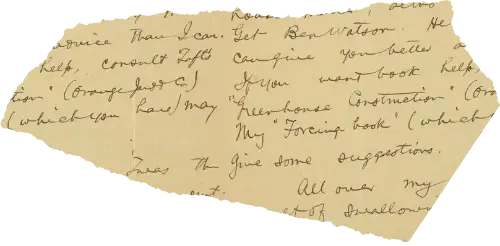 house
advice than I can. Get Ben Watson. He
help, consult Taft's can give you better a
tion" (Orange Judd Co.) If you want book help,
(which you have) may "Greenhouse Construction" (Ora
My "Forcing-book" (which
Twas th Give some suggestions.
ent. All over my
st of swallower